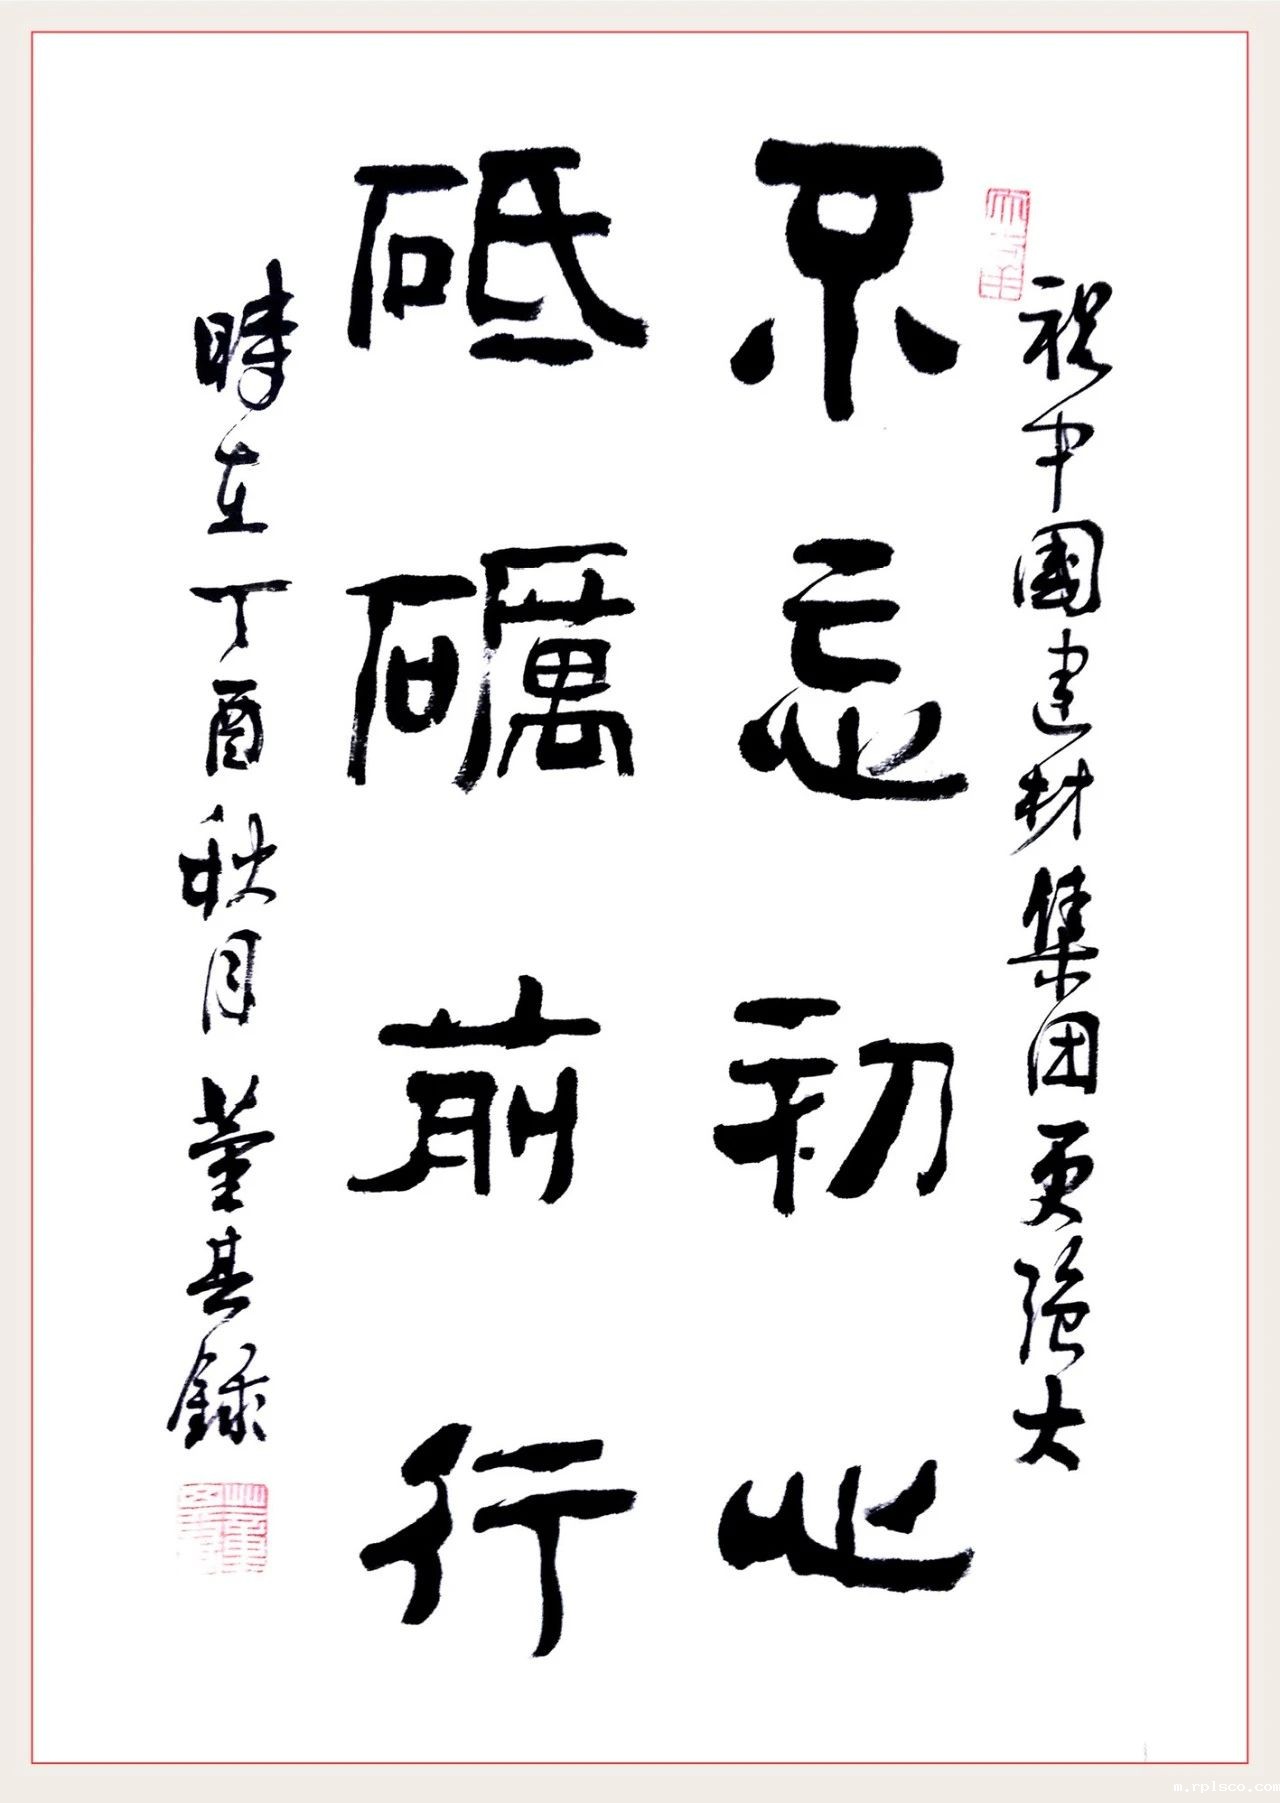 祝中國建材集团更强大
不忘初心
砥礪前行
時在丁酉秋月董其録
m.rplsco.com